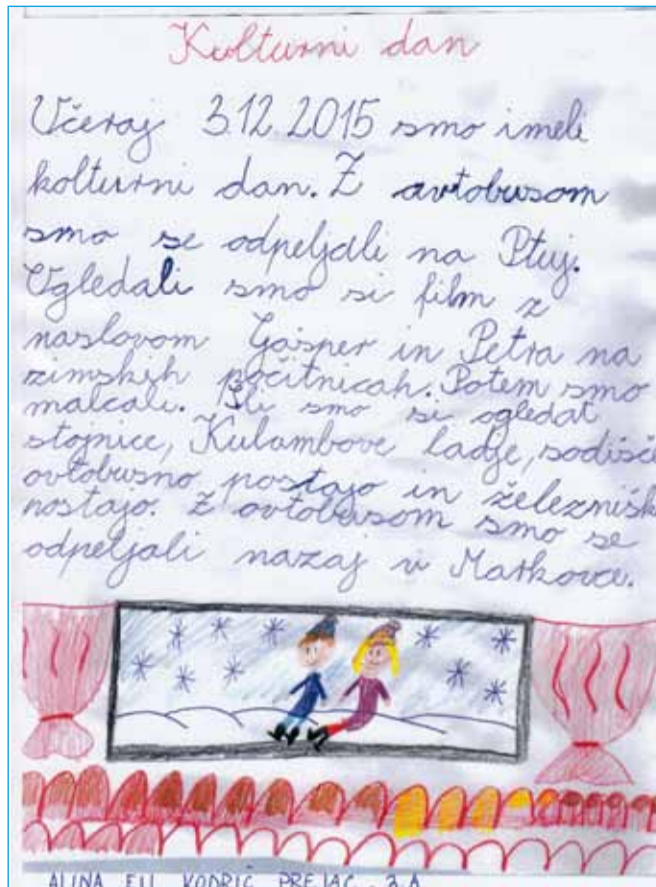 Kulturni dan
Včeraj 3.12.2015 smo imeli
kolturni dan. Z avtobusom
smo se odpeljali na Ptuj.
Ogledali smo si film z
naslovom Gašper in Petra na
zimskih počitnicah. Potem smo
malcali. Šli smo si ogledat
stojnice, Kulambove ladje, sodišče
ovtobusno postajo in železnišk
postajo. Z avtobusom smo se
odpeljali nazaj v Markovce.
ALINA ELI KODRIČ PREJAC, 3.A